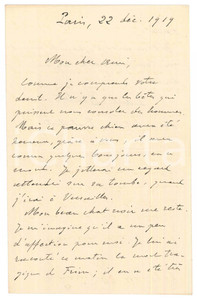 Paris, 22 déc. 1919
Mon cher ami,
Comme je comprends votre
deuil. Il n'y a que les bêtes qui
puissent nous consoler des hommes.
Mais ce pauvre chien avait été
comme quelque
Je jetterai un regard
sur sa tombe, quand
j'irai à Versailles.
Mon beau chat noir me reste.
Je m'imagine qu'il a un peu
d'affection pour moi. Je lui ai
raconté ce matin la mort tra-
gique de et il en a été très